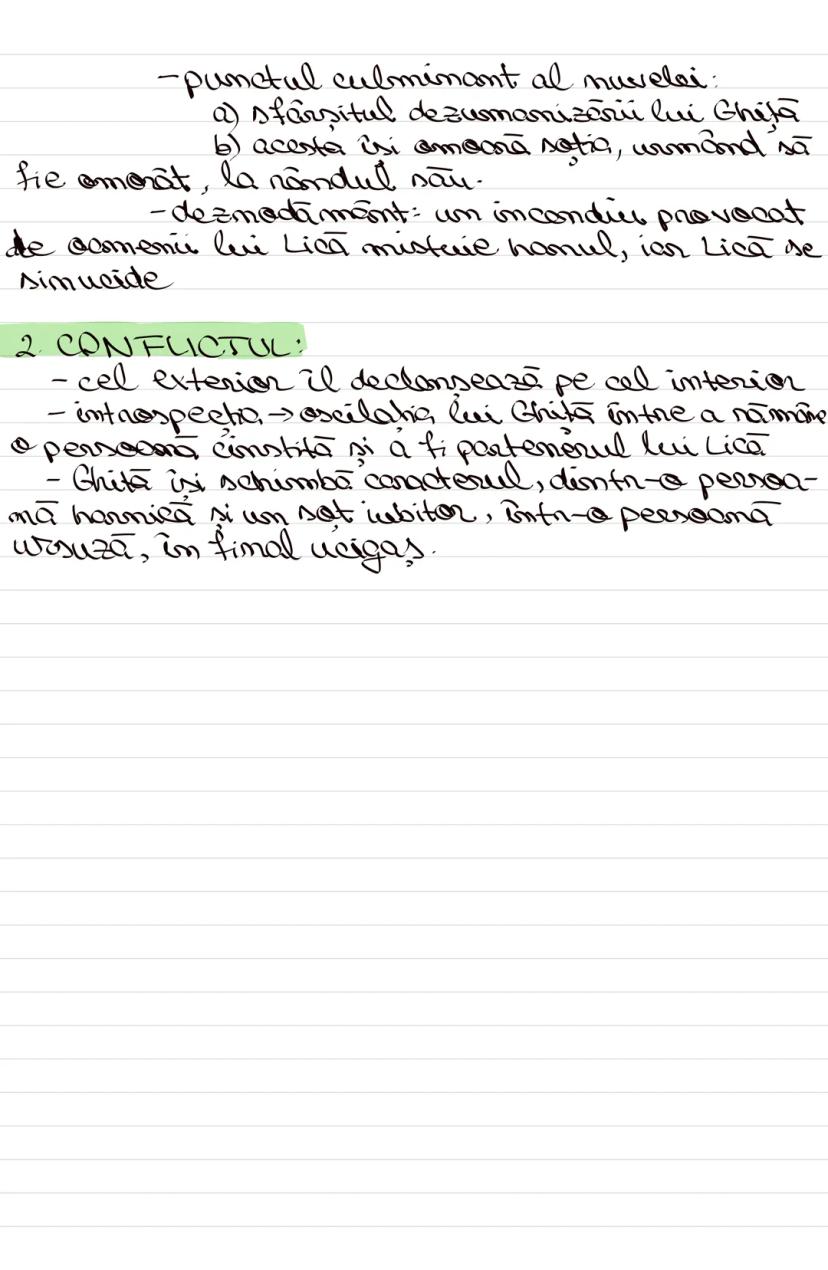 -punctul culminant al nuvelei:
a) sfârșitul dezumanizării lui Ghiță
b) acesta își omoară soția, urmând să
fie omorât, la rândul său.
-deznodământ: un incendiu provocat
de oamenii lui Lică mistuie hanul, iar Lică se
sinucide
2. CONFLICTUL:
- cel exterior îl declanșează pe cel interior
- introspecția → oscilația lui Ghiță între a rămâne
o persoană cinstită și a fi partenerul lui Lică
- Ghiță își schimbă caracterul, dintr-o persoa-
nă harnică și un soț iubitor, într-o persoană
ursuză, în final ucigaș.